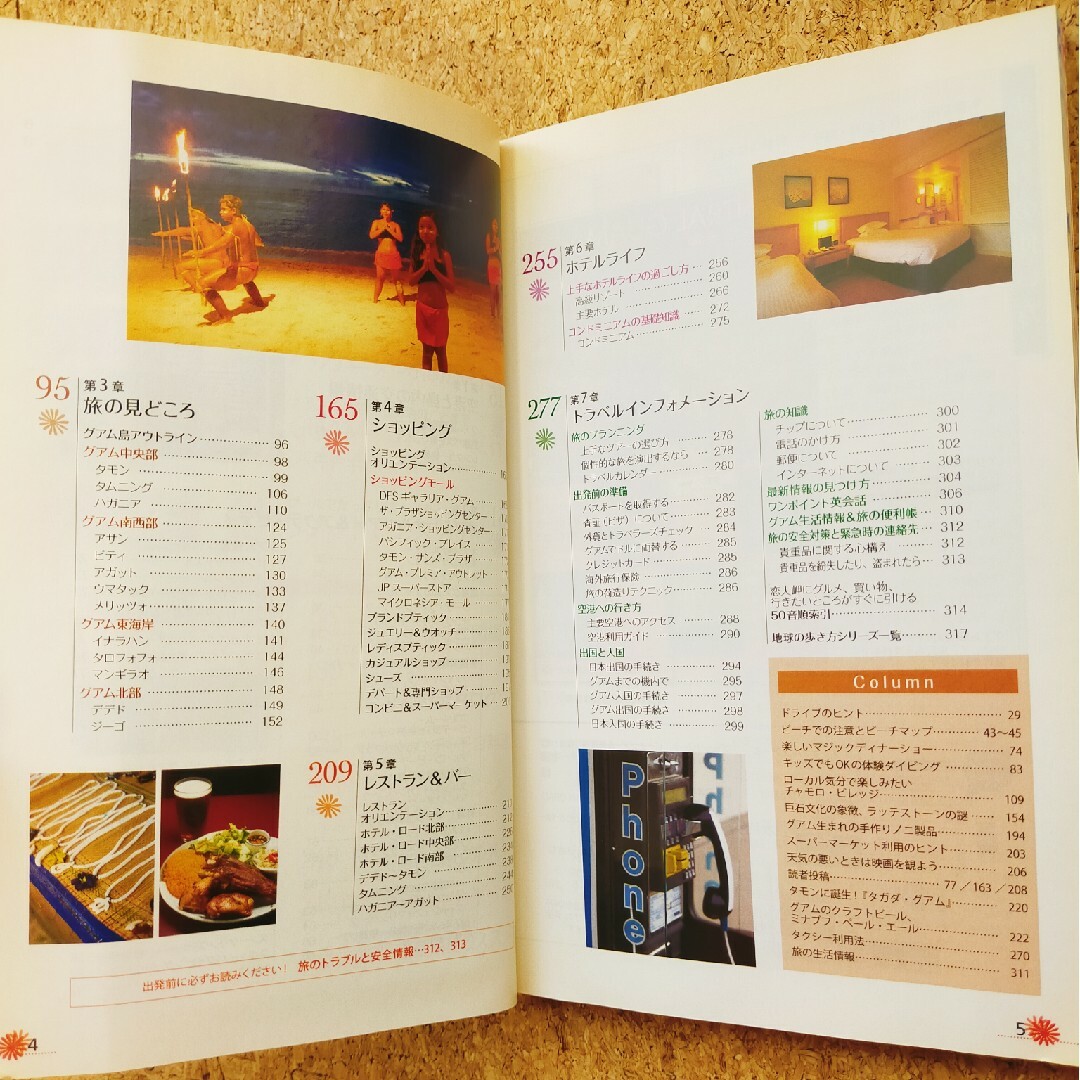 95 第3章
旅の見どころ
グアム島アウトライン 96
グアム中央部 98
タモン 99
タムニング 106
ハガニア 110
グアム南西部 124
アサン 125
ピティ 127
アガット 130
ウマタック 133
メリッツォ 137
グアム東海岸 140
イナラハン 141
タロフォフォ 144
マンギラオ 146
グアム北部 148
デデド 149
ジーゴ 152
165 第4章
ショッピング
ショッピング
オリエンテーション
ショッピングモール
DFS ギャラリア・グアム
ザ・プラザショッピングセンター
アガニア・ショッピングセンター
パシフィック・プレイス
タモン・サンズ・プラザ
グアム・プレミア・アウトレット
JP スーパーストア
マイクロネシア・モール
ブランドブティック
ジュエリー&ウオッチ
レディスブティック
カジュアルショップ
シューズ
デパート&専門ショップ
コンビニ&スーパーマーケット
209 第5章
レストラン&バー
レストラン
オリエンテーション
ホテル・ロード北部
ホテル・ロード中央部
ホテル・ロード南部
デデドータモン
タムニング
ハガニアーアガット
出発前に必ずお読みください! 旅のトラブルと安全情報…312、313
4
255 第6章
ホテルライフ
上手なホテルライフの過ごし方 256
高級リゾート 260
主要ホテル 266
コンドミニアムの基礎知識 272
コンドミニアム 275
277 第7章
トラベルインフォメーション
旅のプランニング
上手なツアーの選び方 278
個性的な旅を演出するなら 278
トラベルカレンダー 280
出発前の準備
パスポートを取得する 282
査証(ビザ)について 283
外貨とトラベラーズチェック 284
グアムでドルに両替する 285
クレジットカード 285
海外旅行保険 286
旅の荷造りテクニック 286
空港への行き方
主要空港へのアクセス 288
空港利用ガイド 290
出国と入国
日本出国の手続き 294
グアムまでの機内で 295
グアム入国の手続き 297
グアム出国の手続き 298
日本入国の手続き 299
旅の知識
チップについて 300
電話のかけ方 301
郵便について 302
インターネットについて 303
最新情報の見つけ方 304
ワンポイント英会話 306
グアム生活情報&旅の便利帳 310
旅の安全対策と緊急時の連絡先 312
貴重品に関する心構え 312
貴重品を紛失したり、盗まれたら 313
恋人岬にグルメ、買い物、
行きたいところがすぐに引ける
50音順索引 314
地球の歩き方シリーズ一覧 317
Column
ドライブのヒント 29
ビーチでの注意とビーチマップ 43〜45
楽しいマジックディナーショー 74
キッズでもOKの体験ダイビング 83
ローカル気分で楽しみたい
チャモロ・ビレッジ 109
巨石文化の象徴、ラッテストーンの謎 154
グアム生まれの手作りノニ製品 194
スーパーマーケット利用のヒント 203
天気の悪いときは映画を観よう 206
読者投稿 77/163/208
タモンに誕生!『タガダ・グアム』 220
グアムのクラフトビール、
ミナゴフ・ペール・エール 222
タクシー利用法 270
旅の生活情報 311
Phone
Ph
5